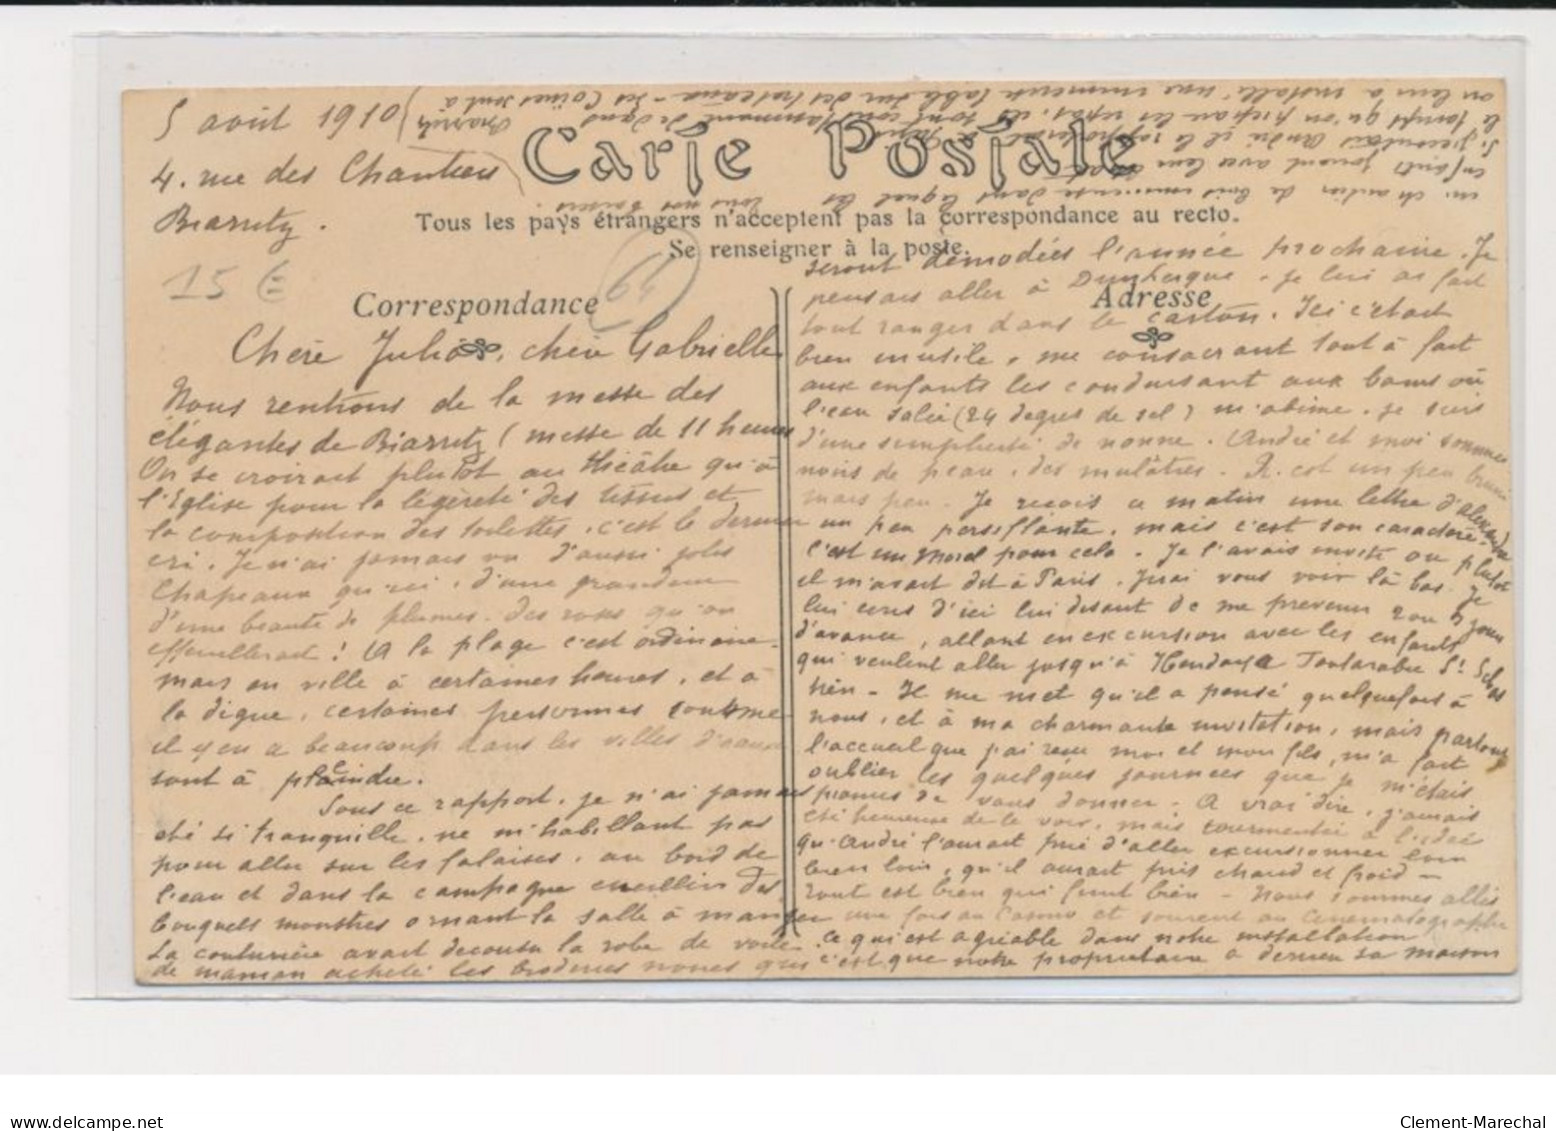 5 avril 1910
4. rue des Chantiers
Biarritz.
Carte Postale
Tous les pays étrangers n'acceptent pas la correspondance au recto.
Se renseigner à la poste.
15 €
64
Correspondance
Chère Julia, chère Gabrielle
Nous rentrons de la messe des
élégantes de Biarritz (messe de 11 heures
On se croirait plutôt au théâtre qu'à
l'Eglise pour la légèreté des tissus et
la composition des toilettes. c'est le dernier
cri. Je n'ai jamais vu d'aussi jolis
Chapeaux qu'ici. d'une grandeur
d'une beauté de plumes. des roses qu'on
effeuillerait! A la plage c'est ordinaire
mais en ville à certaines heures, et à
la digue, certaines personnes comme
il y en a beaucoup dans les villes d'eaux
sont à plaindre.
Sous ce rapport, je n'ai jamais
été si tranquille, ne m'habillant pas
pour aller sur les falaises, au bord de
l'eau et dans la campagne cueillir des
bouquets monstres ornant la salle à manger
La couturière avait décousu la robe de voile
de maman acheté les broderies neuves qui
Adresse
seront démodées l'année prochaine. Je
pensais aller à Dunkerque. je lui ai fait
tout ranger dans le carton. Ici c'était
bien inutile, me consacrant tout à fait
aux enfants les conduisant aux bains où
l'eau salée (24 degrés de sel) m'abime. je suis
d'une simplicité de nonne. André et moi sommes
noirs de peau, des mulâtres. R. est un peu bruni
mais peu. Je reçois ce matin une lettre d'Alexandre
un peu persiflante, mais c'est son caractère.
c'est un Morel pour cela. Je l'avais invité ou plutôt
il m'avait dit à Paris. J'irai vous voir là bas. Je
lui écris d'ici lui disant de me prévenir 2 ou 3 jours
d'avance, allant en excursion avec les enfants
qui veulent aller jusqu'à Hendaye Fontarabie St Sébas
tien - Il me met qu'il a pensé quelquefois à
nous, et à ma charmante invitation, mais partout
l'accueil que j'ai reçu moi et mon fils, m'a fait
oublier les quelques journées que je m'étais
promis de vous donner. A vrai dire, j'aurais
été heureuse de le voir, mais tourmentée à l'idée
qu'André l'aurait prié d'aller excursionner loin
bien loin, qu'il aurait pris chaud et froid -
Tout est bien qui finit bien - Nous sommes allés
une fois au Casino et souvent au cinématographe
ce qui est agréable dans notre installation
c'est que notre propriétaire a derrière sa maison
un chantier de bois immense dans lequel les
enfants jouent avec leur
Si j'écoutais André il le
le temps qu'on prépare les repas, ils sont constamment dedans
on leur a installé une immense table sur des tréteaux - Les Coines sont à
Biarritz
tous nos baisers.